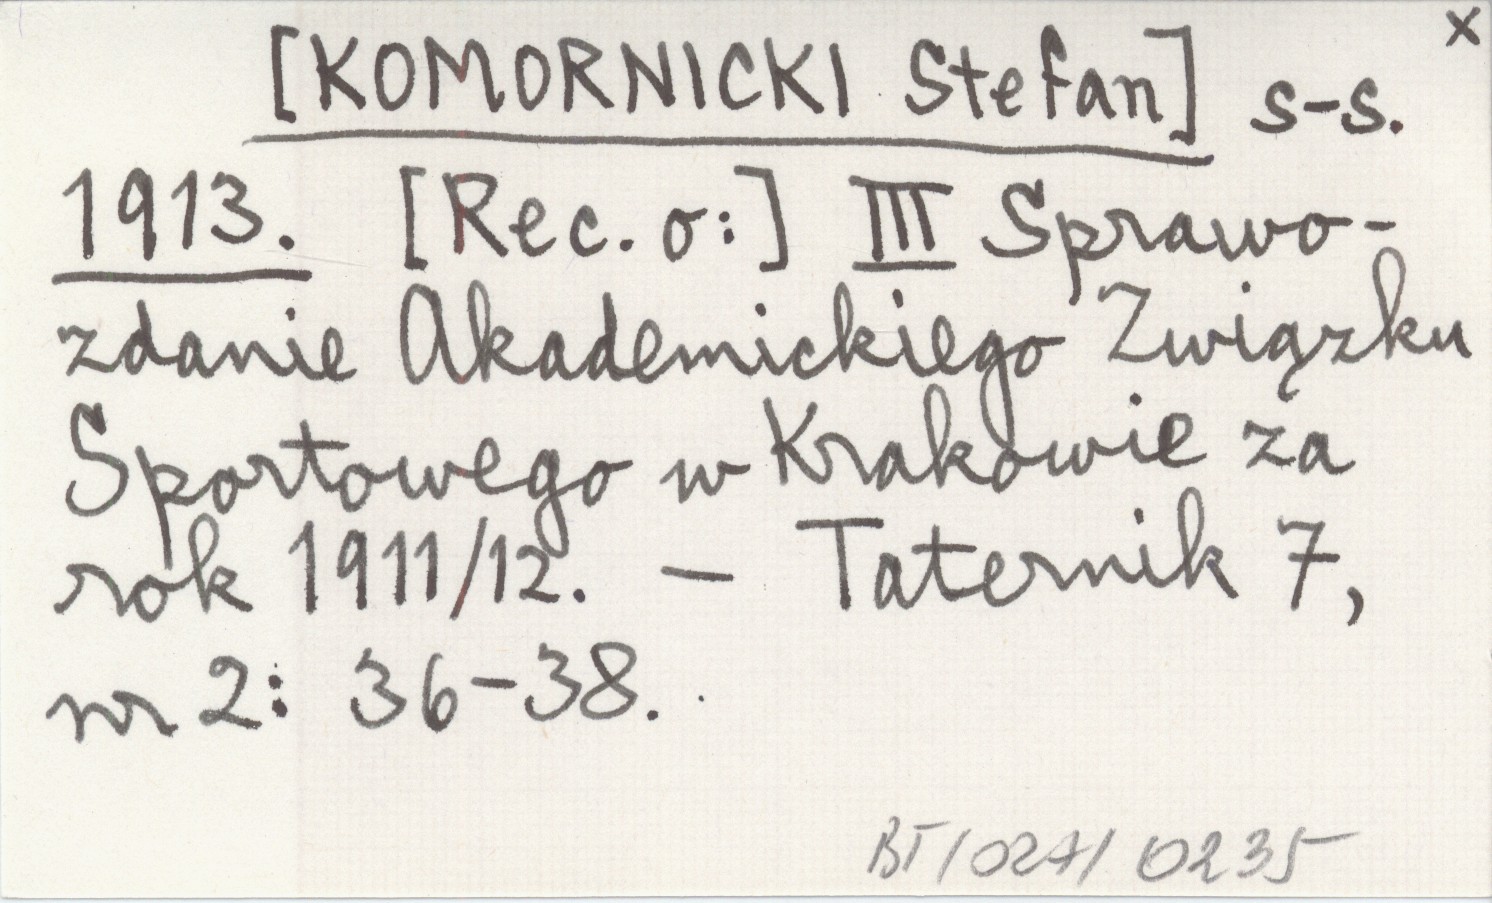 x
[KOMORNICKI Stefan] s-s.
1913. [Rec. o:] III Sprawo-
zdanie Akademickiego Związku
Sportowego w Krakowie za
rok 1911/12. — Taternik 7,
nr 2: 36-38.
BT/027/0235